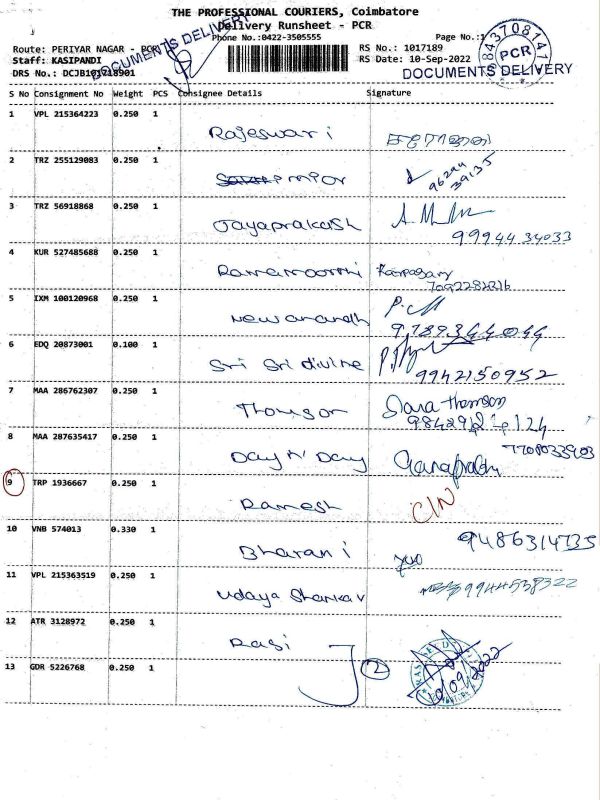 THE PROFESSIONAL COURIERS, Coimbatore
Delivery Runsheet - PCR
Phone No.:0422-3505555
Page No.:1
Route: PERIYAR NAGAR - PCR
RS No.: 1017189
Staff: KASIPANDI
RS Date: 10-Sep-2022
DRS No.: DCJB101718901
DOCUMENTS DELIVERY
8437081417
PCR
DOCUMENTS DELIVERY
S No Consignment No Weight PCS Consignee Details Signature
1 VPL 215364223 0.250 1
Rajeswari
2 TRZ 255129083 0.250 1
mpor
96299
39135
3 TRZ 56918868 0.250 1
Jayaprakash
9994434033
4 KUR 527485688 0.250 1
Ramamoorthi
5 IXM 100120968 0.250 1
New anandh
9789344044
6 EDQ 20873001 0.100 1
Sri Sri divine
9942150952
7 MAA 286762307 0.250 1
Thomson
8 MAA 287635417 0.250 1
Day n' Day
9 TRP 1936667 0.250 1
Ramesh
C/N
10 VNB 574013 0.330 1
Bharani
9486314735
11 VPL 215363519 0.250 1
Udaya Shankar
9944538322
12 ATR 3128972 0.250 1
Rasi
13 GDR 5226768 0.250 1
2
10/09/2022